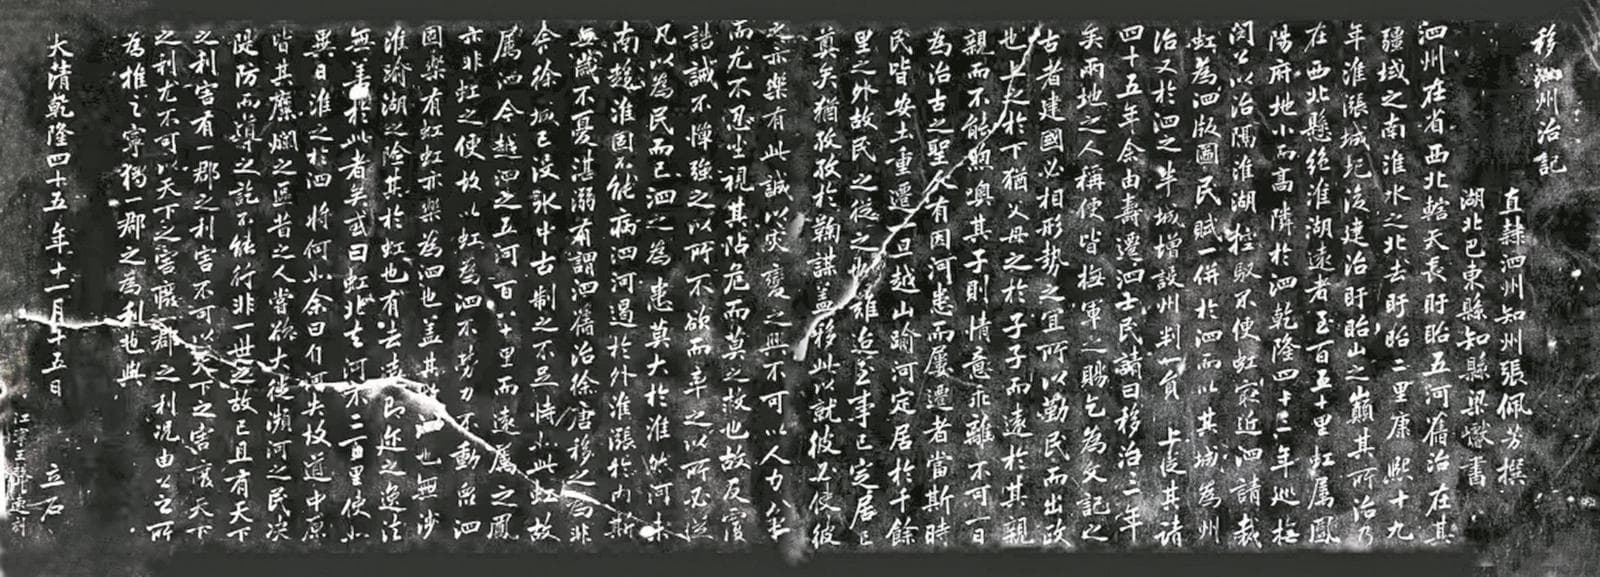 移泗州治記
直隸泗州知州張佩芳撰
湖北巴東縣知縣梁巘書
泗州在省西北轄天長盱眙五河舊治在其
疆域之南淮水之北去盱眙二里康熙十九
年淮漲城圮後建治盱眙山之巔其所治乃
在西北懸絕淮湖遠者至百五十里虹屬鳳
陽府地小而高隣於泗乾隆四十二年巡撫
閔公以治隔淮湖控馭不便虹實近泗請裁
虹為泗版圖民賦一併於泗而以其城為州
治又於泗之半城增設州判一員 上從其請
四十五年余由壽遷泗士民請曰移治三年
矣兩地之人稱便皆撫軍之賜乞為文記之
古者建國必相形勢之宜所以勤民而出政
也上之於下猶父母之於子子而遠於其親
親而不能煦嫗其子則情意乖離不可一日
為治古之聖人有因河患而屢遷者當斯時
民皆安土重遷一旦越山踰河定居於千餘
里之外故民之從之也難迨至事已定居已
奠矣猶孜孜於鞠謀蓋移此以就彼不使彼
之亦樂有此誠以災變之興不可以人力全
而尤不忍坐視其阽危而莫之救也故反覆
誥誡不憚強之以所不欲而卒之以所丕從
凡以為民而已泗之為患莫大於淮然河未
南趨淮固不能病泗河遏於外淮漲於內斯
無歲不憂湛溺有謂泗舊治徐唐移之為非
今徐城已沒水中古制之不足恃如此虹故
屬泗今越泗之五河百八十里而遠屬之鳳
亦非虹之便故以虹為泗不勞力不動眾泗
固樂有虹虹亦樂為泗也蓋其 也無涉
淮踰湖之險其於虹也有去遠即近之逸法
無善於此者矣或曰虹北去河不二百里使如
異日淮之於泗將何如余曰何 夫故道中原
皆其糜爛之區昔之人嘗欲大徙瀕河之民決
隄防而導之訖不能行非一世之故已且有天下
之利害有一郡之利害不可以天下之害 天下
之利尤不可以天下之害廢一郡之利況由公之所
為推之寧獨一郡之為利也與
大清乾隆四十五年十一月十五日 立石
江寧 刻